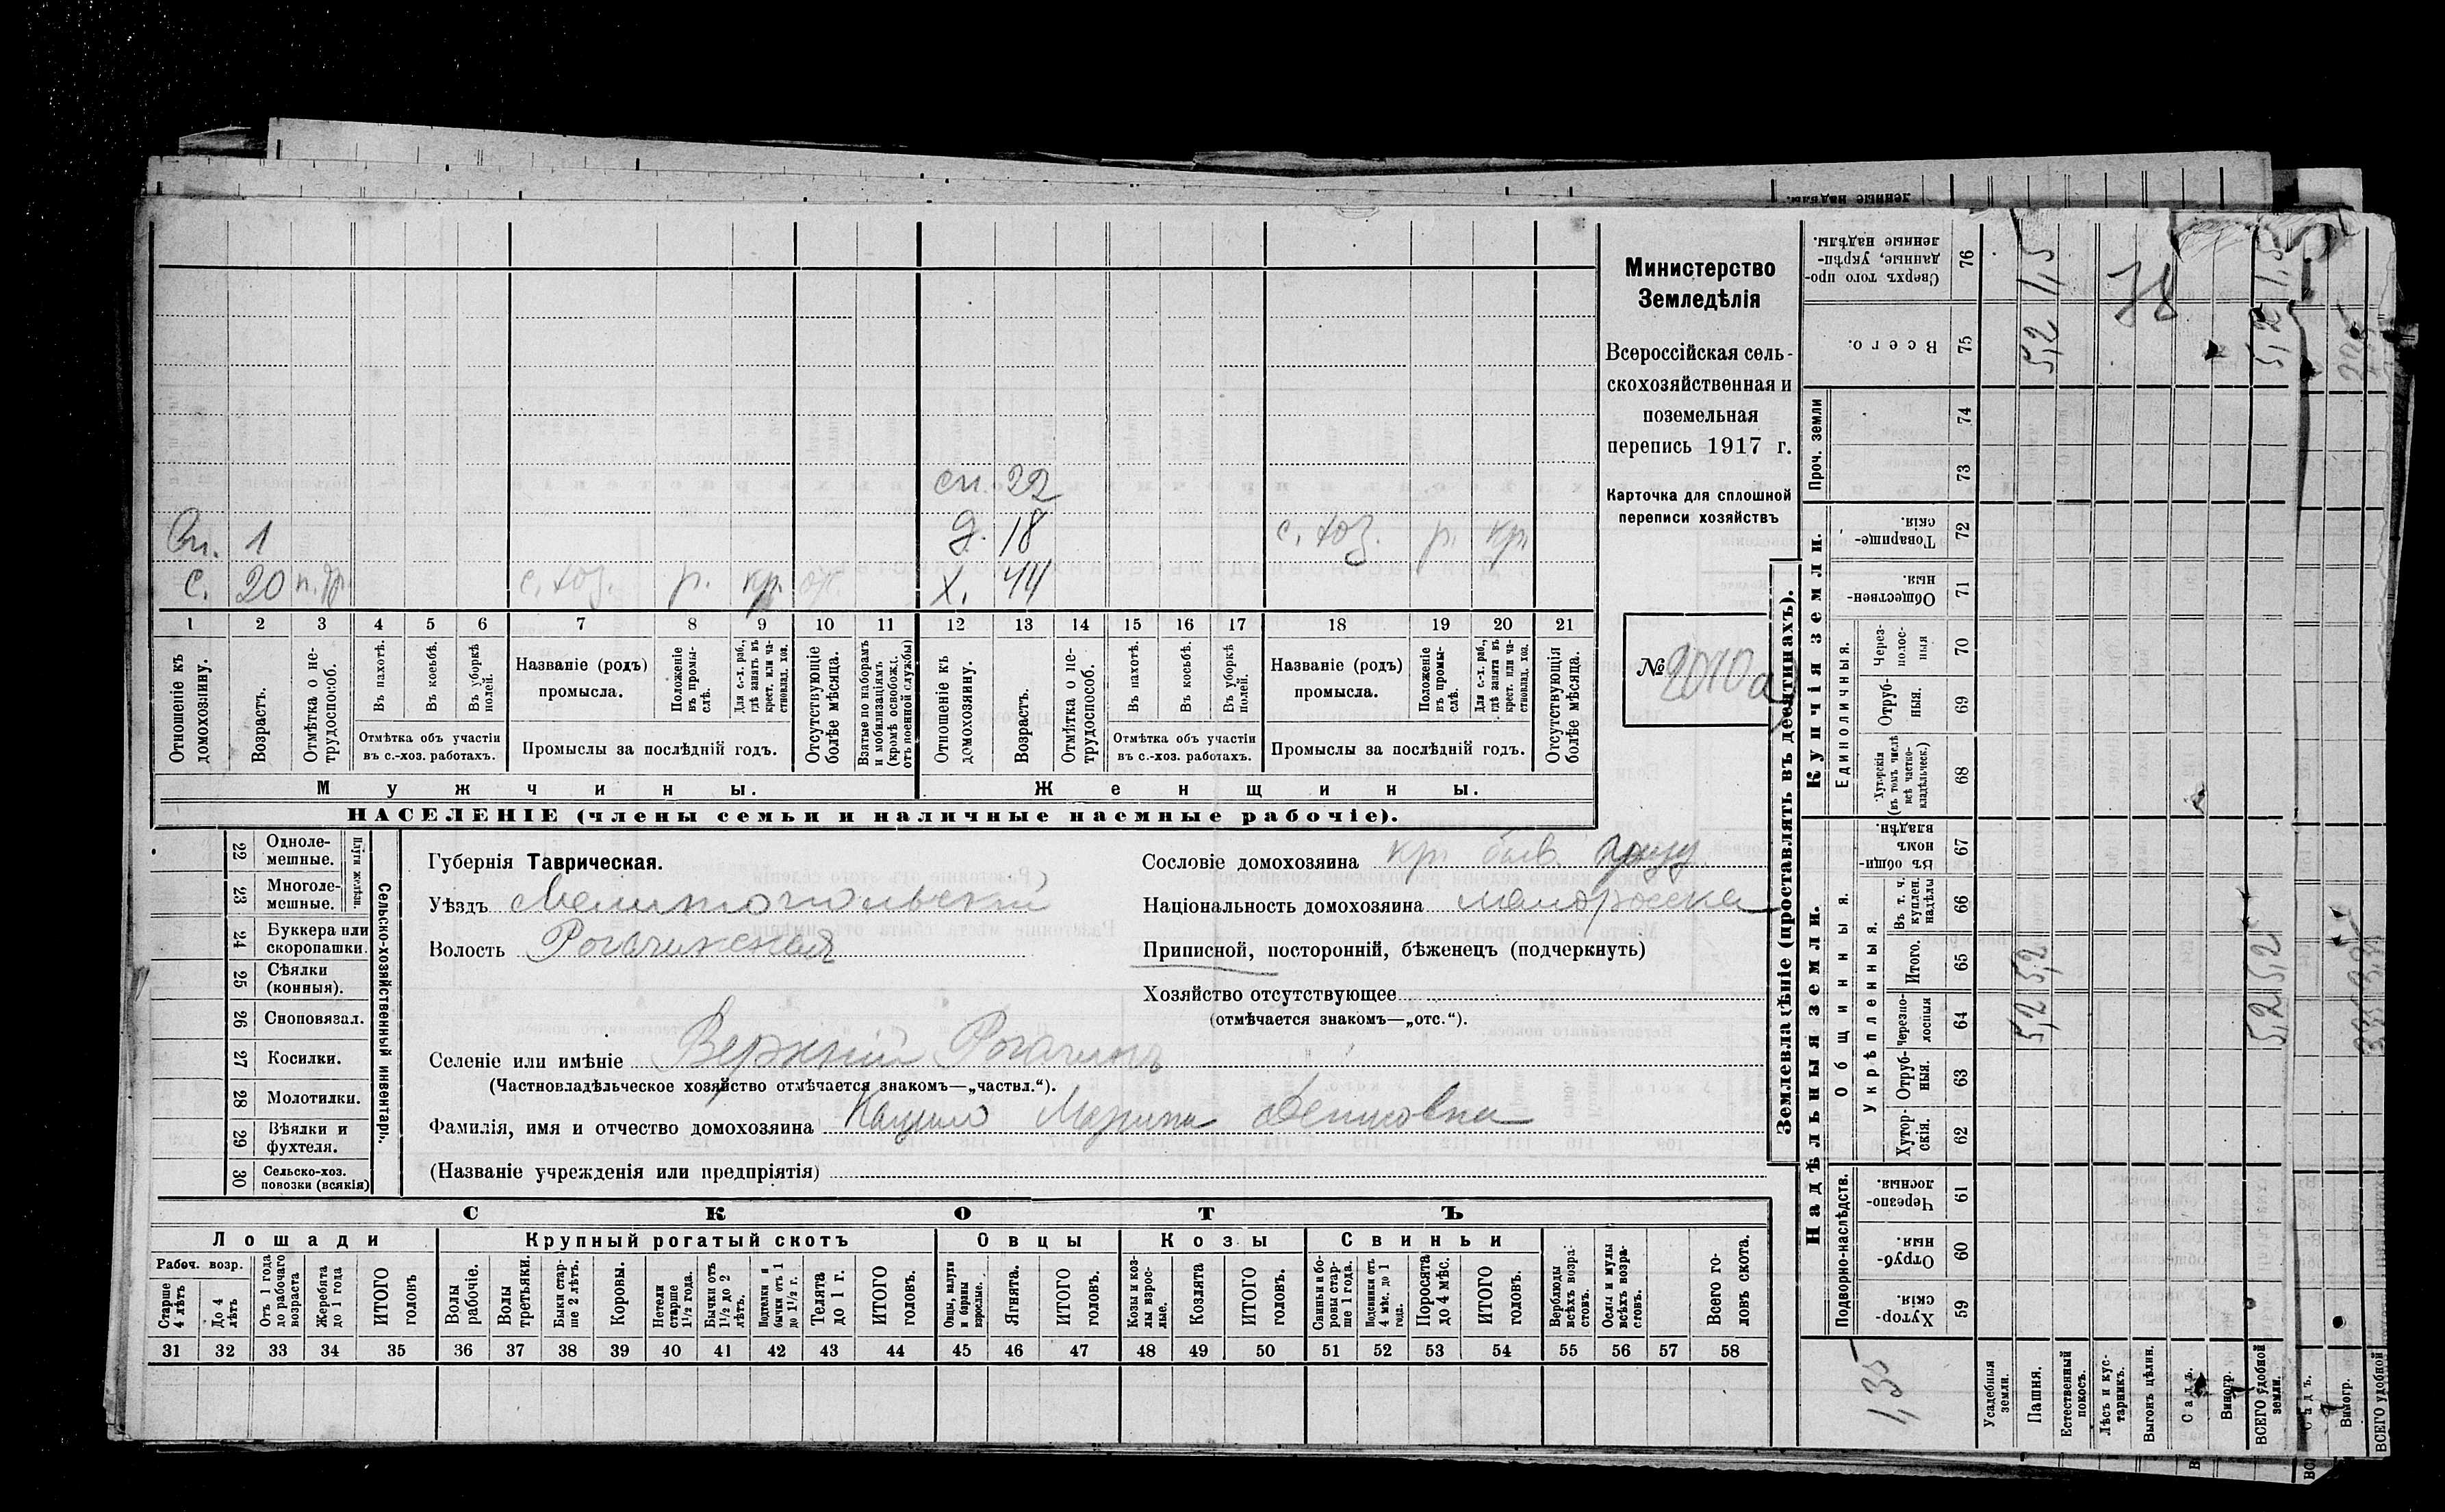 Министерство
Земледѣлія
Всероссійская сель-
скохозяйственная и
поземельная
перепись 1917 г.
Карточка для сплошной
переписи хозяйствъ
№ 2010а
сп. 22
Вн. 1
д. 18 с. хоз. р. кр.
с. 20 с. хоз. р. кр.
х. 44
1 2 3 4 5 6 7 8 9 10 11 12 13 14 15 16 17 18 19 20 21
Отношеніе къ домохозяину.
Возрастъ.
Отмѣтка о не-трудоспособ.
Въ пахотѣ.
Въ косьбѣ.
Въ уборкѣ полей.
Отмѣтка объ участіи
въ с.-хоз. работахъ.
Названіе (родъ)
промысла.
Положеніе въ промы-слѣ.
Для с.-х. раб., гдѣ занятъ въ крест. или ча-стновлад. хоз.
Промыслы за послѣдній годъ.
Отсутствующіе болѣе мѣсяца.
Взятые по наборамъ и мобилизаціямъ (кромѣ освобожд. отъ военной службы)
Отношеніе къ домохозяину.
Возрастъ.
Отмѣтка о не-трудоспособ.
Въ пахотѣ.
Въ косьбѣ.
Въ уборкѣ полей.
Отмѣтка объ участіи
въ с.-хоз. работахъ.
Названіе (родъ)
промысла.
Положеніе въ промы-слѣ.
Для с.-х. раб., гдѣ занята въ крест. или ча-стновлад. хоз.
Промыслы за послѣдній годъ.
Отсутствующія болѣе мѣсяца.
Мужчины.
Женщины.
НАСЕЛЕНІЕ (члены семьи и наличные наемные рабочіе).
22 Одноле-мешные.
23 Многоле-мешные.
Плуги желѣзн.
24 Буккера или скоропашки.
25 Сѣялки (конныя).
26 Сноповязал.
27 Косилки.
28 Молотилки.
29 Вѣялки и фухтеля.
30 Сельско-хоз. повозки (всякія)
Сельско-хозяйственный инвентарь.
Губернія Таврическая.
Уѣздъ Мелитопольскій
Волость Рогачикская
Селеніе или имѣніе Верхній Рогачикъ
(Частновладѣльческое хозяйство отмѣчается знакомъ—„частвл.“).
Фамилія, имя и отчество домохозяина Марина Денисовна
(Названіе учрежденія или предпріятія)
Сословіе домохозяина кр.
Національность домохозяина малоросска
Приписной, посторонній, бѣженецъ (подчеркнуть)
Хозяйство отсутствующее
(отмѣчается знакомъ—„отс.“).
СКОТЪ
Лошади
Крупный рогатый скотъ
Овцы
Козы
Свиньи
Рабоч. возр.
Старше 4 лѣтъ
До 4 лѣтъ
Отъ 1 года до рабочаго возраста
Жеребята до 1 года
ИТОГО головъ
Волы рабочіе.
Волы третьяки.
Быки стар-ше 2 лѣтъ.
Коровы.
Нетели старше 1½ года.
Бычки отъ 1½ до 2 лѣтъ.
Подтелки и бычки отъ 1 до 1½ г.
Телята до 1 г.
ИТОГО головъ.
Овцы, валухи и бараны взрослые.
Ягнята.
ИТОГО головъ.
Козы и коз-лы взрос-лые.
Козлята
ИТОГО головъ.
Свиньи и бо-ровы стар-ше 1 года.
Подсвинки отъ 4 мѣс. до 1 года.
Поросята до 4 мѣс.
ИТОГО головъ.
Верблюды всѣхъ возра-стовъ.
Ослы и мулы всѣхъ возра-стовъ.
Всего го-ловъ скота.
31 32 33 34 35 36 37 38 39 40 41 42 43 44 45 46 47 48 49 50 51 52 53 54 55 56 57 58
Землевладѣніе (проставлять въ десятинахъ).
Надѣльныя земли.
Купчія земли.
Подворно-наслѣдств.
Общинныя.
Укрѣпленныя.
Единоличныя.
Проч. земли
59 Хутор-скія.
60 Отруб-ныя.
61 Черезпо-лосныя.
62 Хутор-скія.
63 Отруб-ныя.
64 Черезпо-лосныя
65 Итого.
66 Въ т. ч. куплен. надѣлы
67 Въ общин-номъ владѣн.
68 Хуторскія (въ томъ числѣ всѣ частно-владѣльческ.)
69 Отруб-ныя.
70 Через-полос-ныя
71 Обществен-ныя.
72 Товарище-скія.
73
74
75 Всего.
76 Сверхъ того про-данные, укрѣп-ленные надѣлы.
1,35
Усадебныя земли.
Пашня. 5,2 5,2 5,2 1,5
Естественный покосъ.
Лѣсъ и кус-тарникъ.
Выгонъ цѣлин.
Садъ.
Виногр.
ВСЕГО удобной земли. 5,2 5,2 5,2 1,5
78
Садъ.
Виногр.
ВСЕГО удобной
ленные надѣлы.